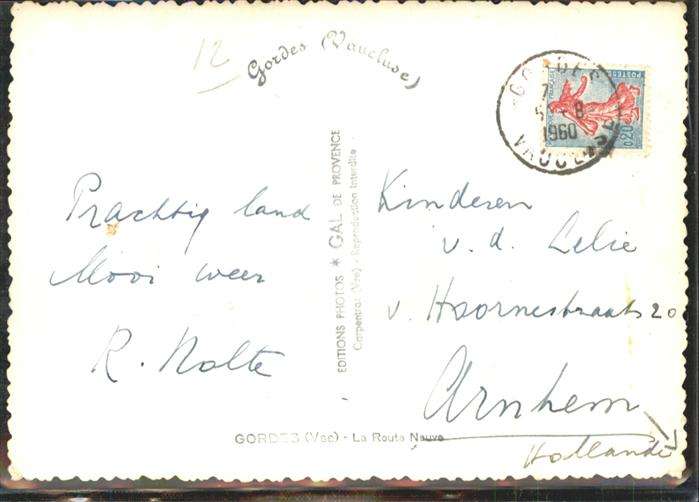 12
Gordes (Vaucluse)
GORDES
7
5-8
1960
VAUCLUSE
POSTES
0,20
Prachtig land
Mooi weer
R. Nolte
EDITIONS PHOTOS * GAL DE PROVENCE
Carpentras (Vse) - Reproduction Interdite
Kinderen
v. d. Lelie
v. Hoornestraat 20
Arnhem
Hollande
GORDES (Vse) - La Route Neuve